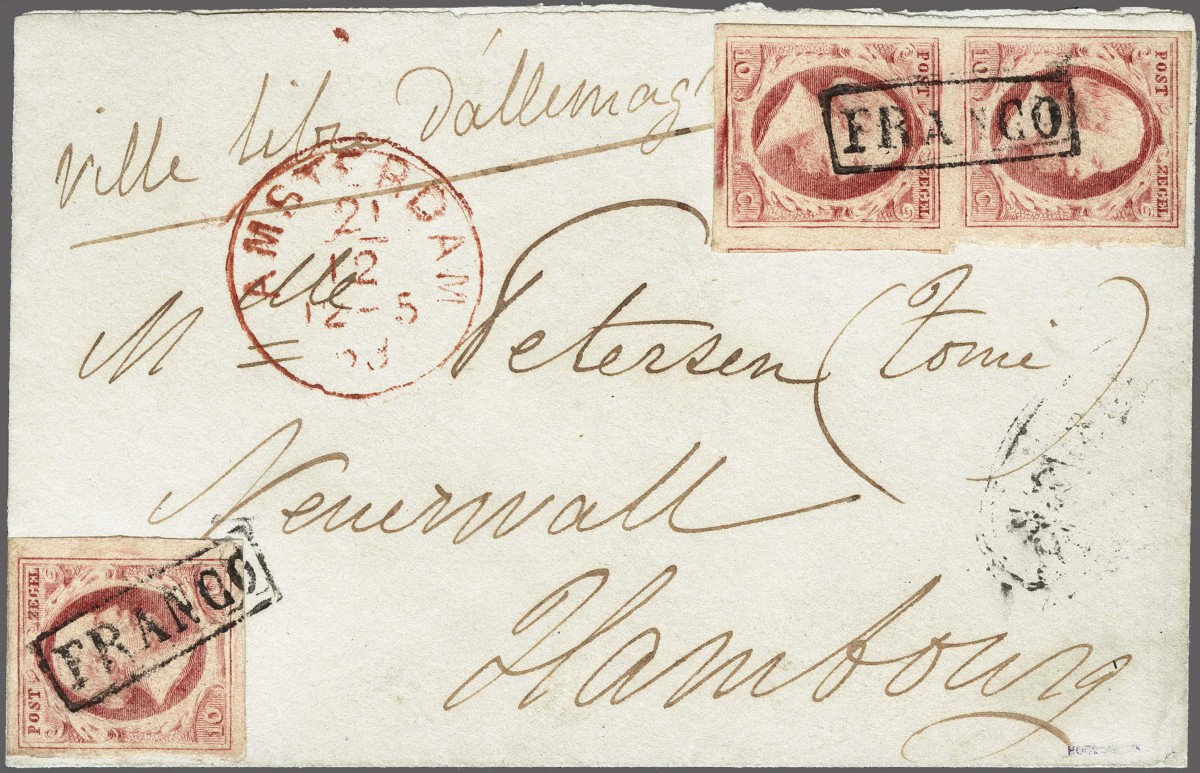 ville libre d'allemag
10 POST ZEGEL
10 POST ZEGEL
FRANCO
AMSTERDAM
21
12
12-5
M lle Petersen (Tomi)
Neuerwall
Hambourg
POST ZEGEL 10
FRANCO